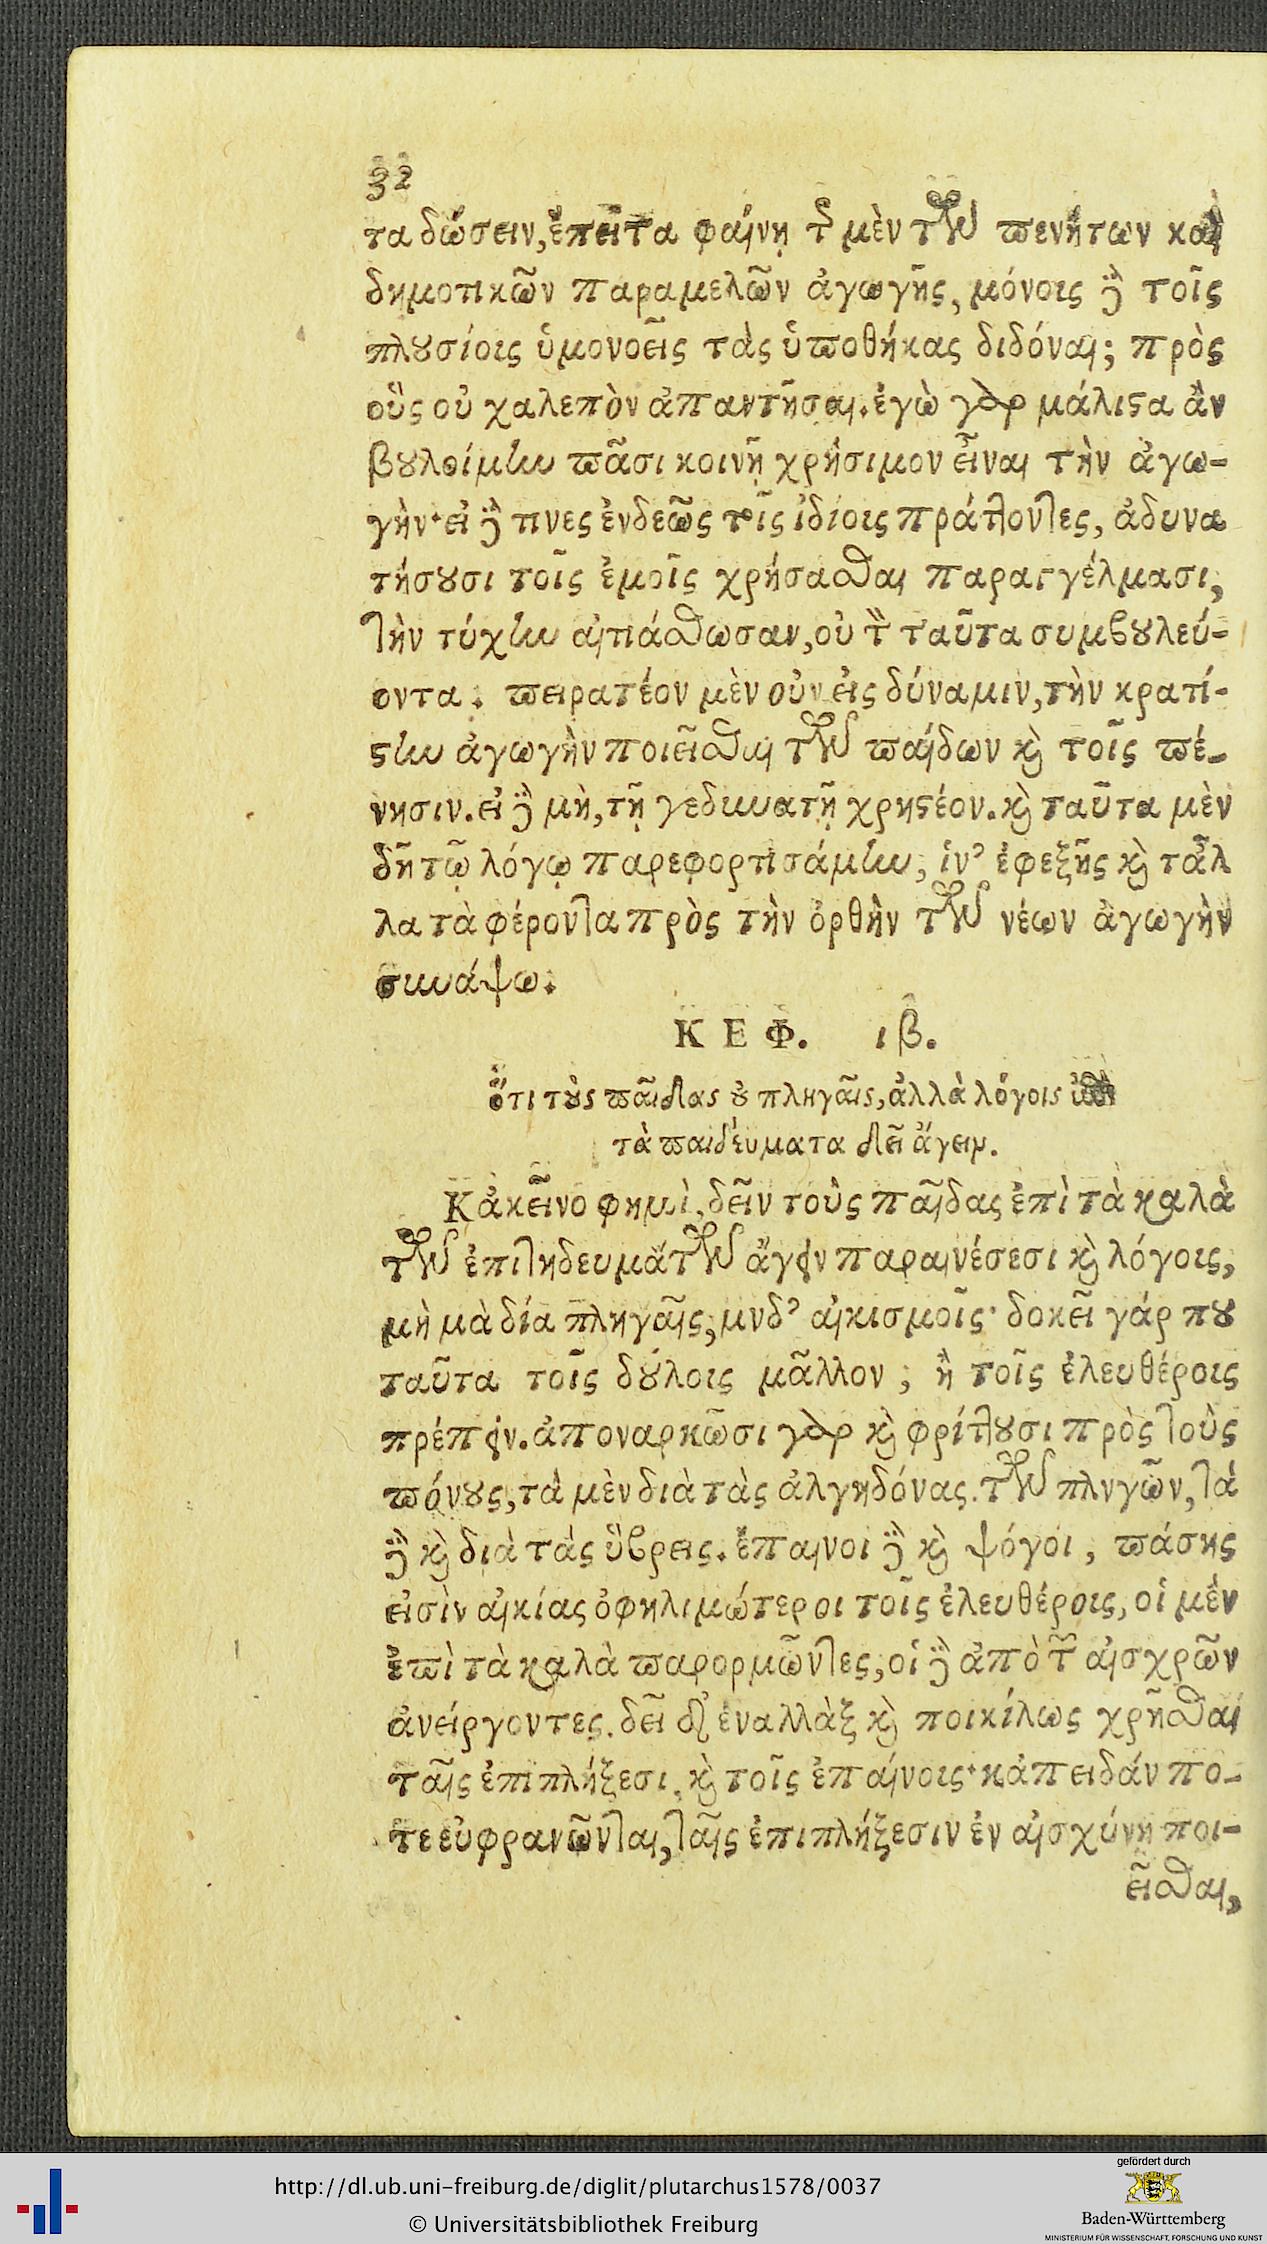 32
τα δώσειν, ἔπειτα φαίνῃ τ͂ μὲν τῶν πενήτων καὶ
δημοτικῶν παραμελῶν ἀγωγῆς, μόνοις δὲ τοῖς
πλουσίοις ὁμονοεῖς τὰς ὑποθήκας διδόναι; πρὸς
οὓς οὐ χαλεπὸν ἀπαντῆσαι. ἐγὼ γὰρ μάλιστα ἂν
βουλοίμην πᾶσι κοινῇ χρήσιμον εἶναι τὴν ἀγω-
γὴν· εἰ δὲ τινες ἐνδεῶς τοῖς ἰδίοις πράττοντες, ἀδυνα
τήσουσι τοῖς ἐμοῖς χρήσασθαι παραγγέλμασι,
τὴν τύχην αἰτιάσθωσαν, οὐ τὸν ταῦτα συμβουλεύ-
οντα. πειρατέον μὲν οὖν εἰς δύναμιν, τὴν κρατί-
στην ἀγωγὴν ποιεῖσθαι τῶν παίδων καὶ τοῖς πέ-
νησιν. εἰ δὲ μὴ, τῇ γε δυνατῇ χρηστέον. καὶ ταῦτα μὲν
δῆ τῷ λόγῳ παρεφορτισάμην, ἱν' ἐφεξῆς καὶ τἆλ
λα τὰ φέροντα πρὸς τὴν ὀρθὴν τῶν νέων ἀγωγὴν
συνάψω.
ΚΕΦ. ιβ.
ὅτι τοὺς παῖδας οὐ πληγαῖς, ἀλλὰ λόγοις
τὰ παιδεύματα δεῖ ἄγειν.
Κἀκεῖνο φημὶ, δεῖν τοὺς παῖδας ἐπὶ τὰ καλὰ
τῶν ἐπιτηδευμάτων ἄγειν παραινέσεσι καὶ λόγοις,
μὴ μὰ δία πληγαῖς, μνδ' αἰκισμοῖς· δοκεῖ γάρ που
ταῦτα τοῖς δούλοις μᾶλλον, ἢ τοῖς ἐλευθέροις
πρέπειν. ἀποναρκῶσι γὰρ καὶ φρίττουσι πρὸς τοὺς
πόνους, τὰ μὲν διὰ τὰς ἀλγηδόνας. τῶν πλνγῶν, τὰ
δὲ καὶ διὰ τὰς ὕβρεις. ἔπαινοι δὲ καὶ ψόγοι, πάσης
εἰσὶν αἰκίας ὀφηλιμώτεροι τοῖς ἐλευθέροις, οἱ μὲν
ἐπὶ τὰ καλὰ παρορμῶντες, οἱ δὲ ἀπὸ τῶν αἰσχρῶν
ἀνείργοντες. δεῖ δ' ἐναλλὰξ καὶ ποικίλως χρῆσθαι
ταῖς ἐπιπλήξεσι, καὶ τοῖς ἐπαίνοις· κἀπειδάν πο-
τε εὐφρανῶνται, ταῖς ἐπιπλήξεσιν ἐν αἰσχύνῃ ποι-
εῖσθαι,
http://dl.ub.uni-freiburg.de/diglit/plutarchus1578/0037
© Universitätsbibliothek Freiburg
gefördert durch
Baden-Württemberg
MINISTERIUM FÜR WISSENSCHAFT, FORSCHUNG UND KUNST